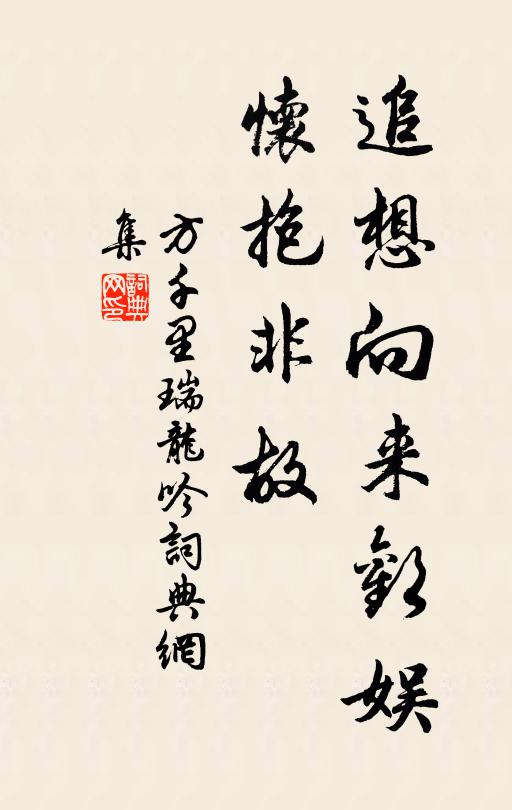 追想向来歡娱
懷抱非故
方千里瑞龍吟詞典網
集
詞典
网印